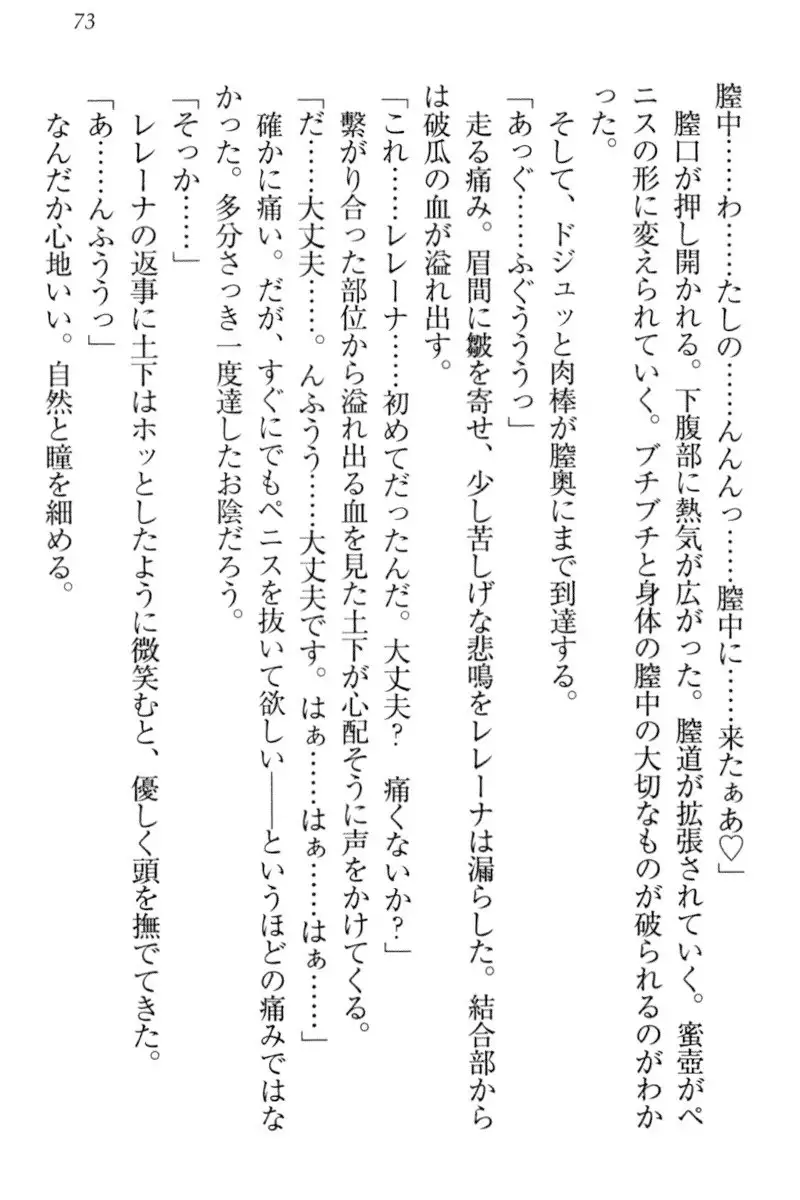 73
膣中……わ……たしの……んんんっ……膣中に……来たぁあ♡」
　膣口が押し開かれる。下腹部に熱気が広がった。膣道が拡張されていく。蜜壺がペ
ニスの形に変えられていく。ブチブチと身体の膣中の大切なものが破られるのがわか
った。
　そして、ドジュッと肉棒が膣奥にまで到達する。
「あっぐ……ふぐうううっ」
　走る痛み。眉間に皺を寄せ、少し苦しげな悲鳴をレレーナは漏らした。結合部から
は破瓜の血が溢れ出す。
「これ……レレーナ……初めてだったんだ。大丈夫？　痛くないか？」
　繋がり合った部位から溢れ出る血を見た土下が心配そうに声をかけてくる。
「だ……大丈夫……。んふうう……大丈夫です。はぁ……はぁ……はぁ……」
　確かに痛い。だが、すぐにでもペニスを抜いて欲しい――というほどの痛みではな
かった。多分さっき一度達したお陰だろう。
「そっか……」
　レレーナの返事に土下はホッとしたように微笑むと、優しく頭を撫でてきた。
「あ……んふううっ」
　なんだか心地いい。自然と瞳を細める。